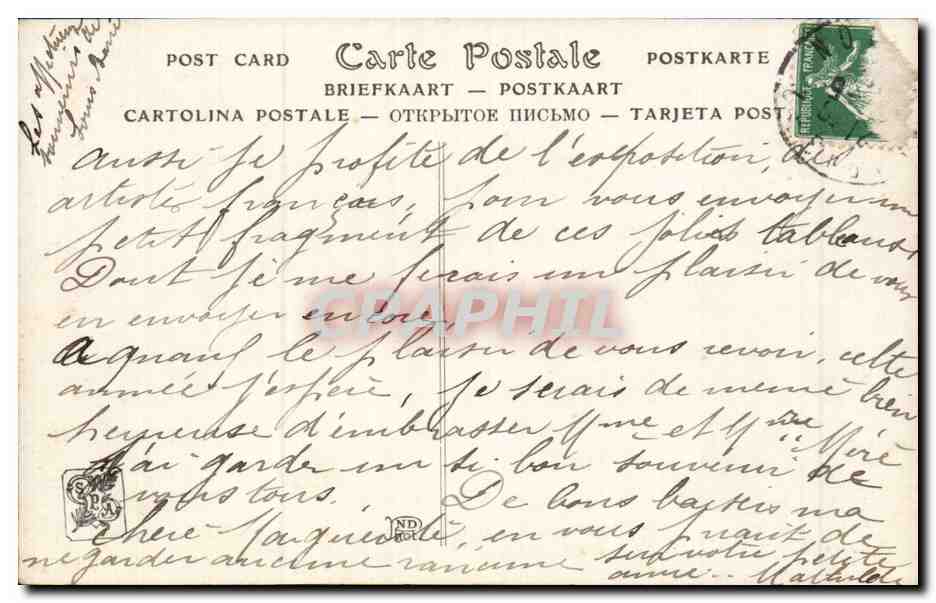 Les affectueux
souvenirs de
Louis Marie
POST CARD Carte Postale POSTKARTE
BRIEFKAART — POSTKAART
CARTOLINA POSTALE — ОТКРЫТОЕ ПИСЬМО — TARJETA POST
REPUBLIQUE FRANÇAISE
aussi je profite de l'exposition, des
artistes français, pour vous envoyer un
petit fragment de ces jolies tableaus
Dont je me ferais un plaisir de vous
en envoyer encore.
CPAPHIL
A quand le plaisir de vous revoir, cette
année j'espère, je serais de meme bien
heureuse d'embrasser Mme et Mme Méré
J'ai garder un si bon souvenir de
vous tous. De bons baisers ma
SPA
chere en vous priant de
ND
Phot
ne garder aucune rancune sur votre petite
amie.. Mathilde